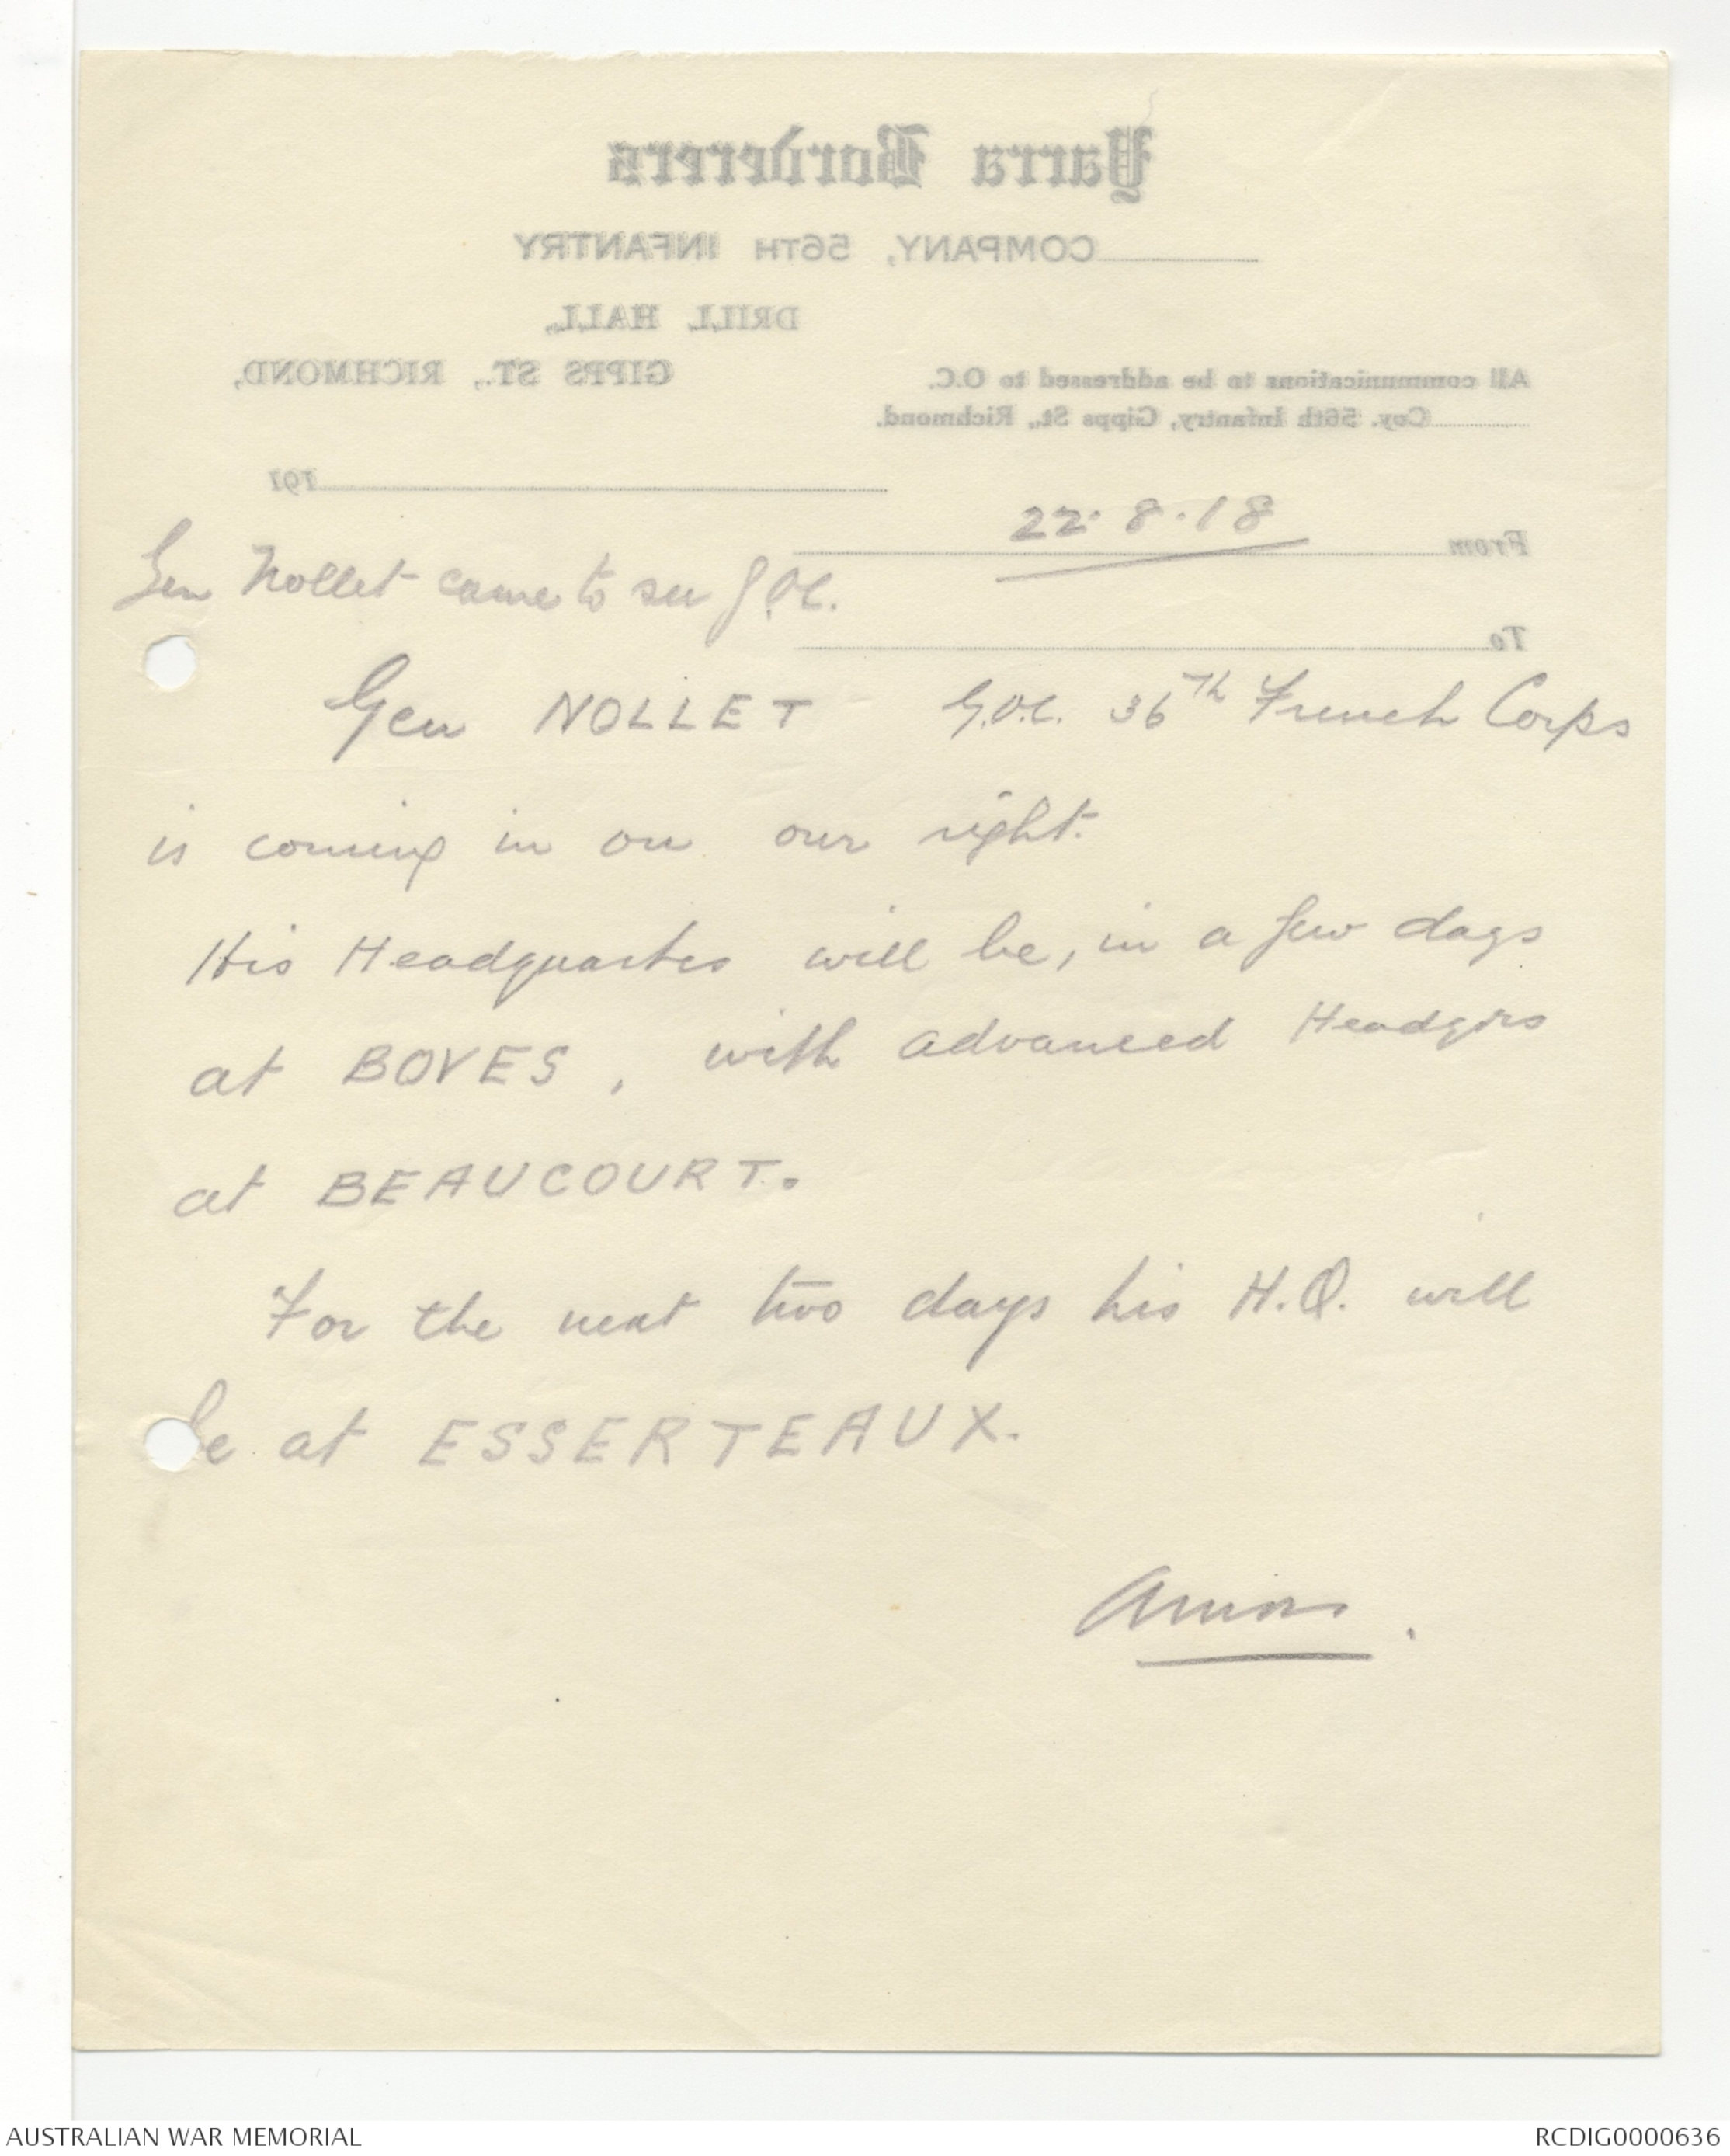 Yarra Borderers
COMPANY, 56TH INFANTRY
DRILL HALL,
GIPPS ST., RICHMOND,
All communications to be addressed to O.C.
Coy. 56th Infantry, Gipps St., Richmond.
191
From
22.8.18
Gen Nollet came to see G.O.C.
To
Gen NOLLET G.O.C. 36Th French Corps
is coming in on our right.
His Headquarters will be, in a few days
at BOVES, with advanced Headqrs
at BEAUCOURT.
For the next two days his H.Q. will
be at ESSERTEAUX.
AUSTRALIAN WAR MEMORIAL
RCDIG0000636